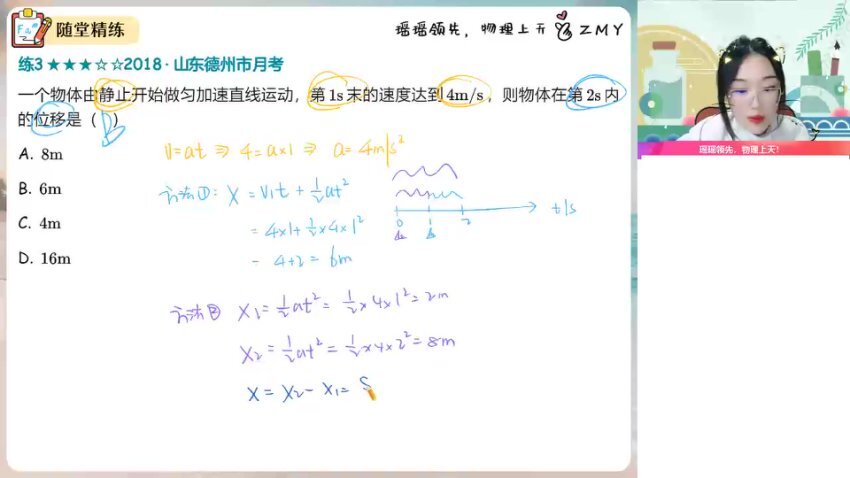 随堂精练
瑶瑶领先，物理上天 ZMY
练3 ★★★☆☆ 2018·山东德州市月考
一个物体由静止开始做匀加速直线运动，第 1s 末的速度达到 4m/s，则物体在第 2s 内
的位移是（ B ）
A. 8m
B. 6m
C. 4m
D. 16m
v=at ⇒ 4=a×1 ⇒ a=4m/s²
方法①: x = v₁t + ½at²
= 4×1+½×4×1²
= 4+2 = 6m
0 1 2 t/s
方法② x₁=½at²=½×4×1²=2m
x₂=½at²=½×4×2²=8m
x = x₂ - x₁ = 8
瑶瑶领先，物理上天！